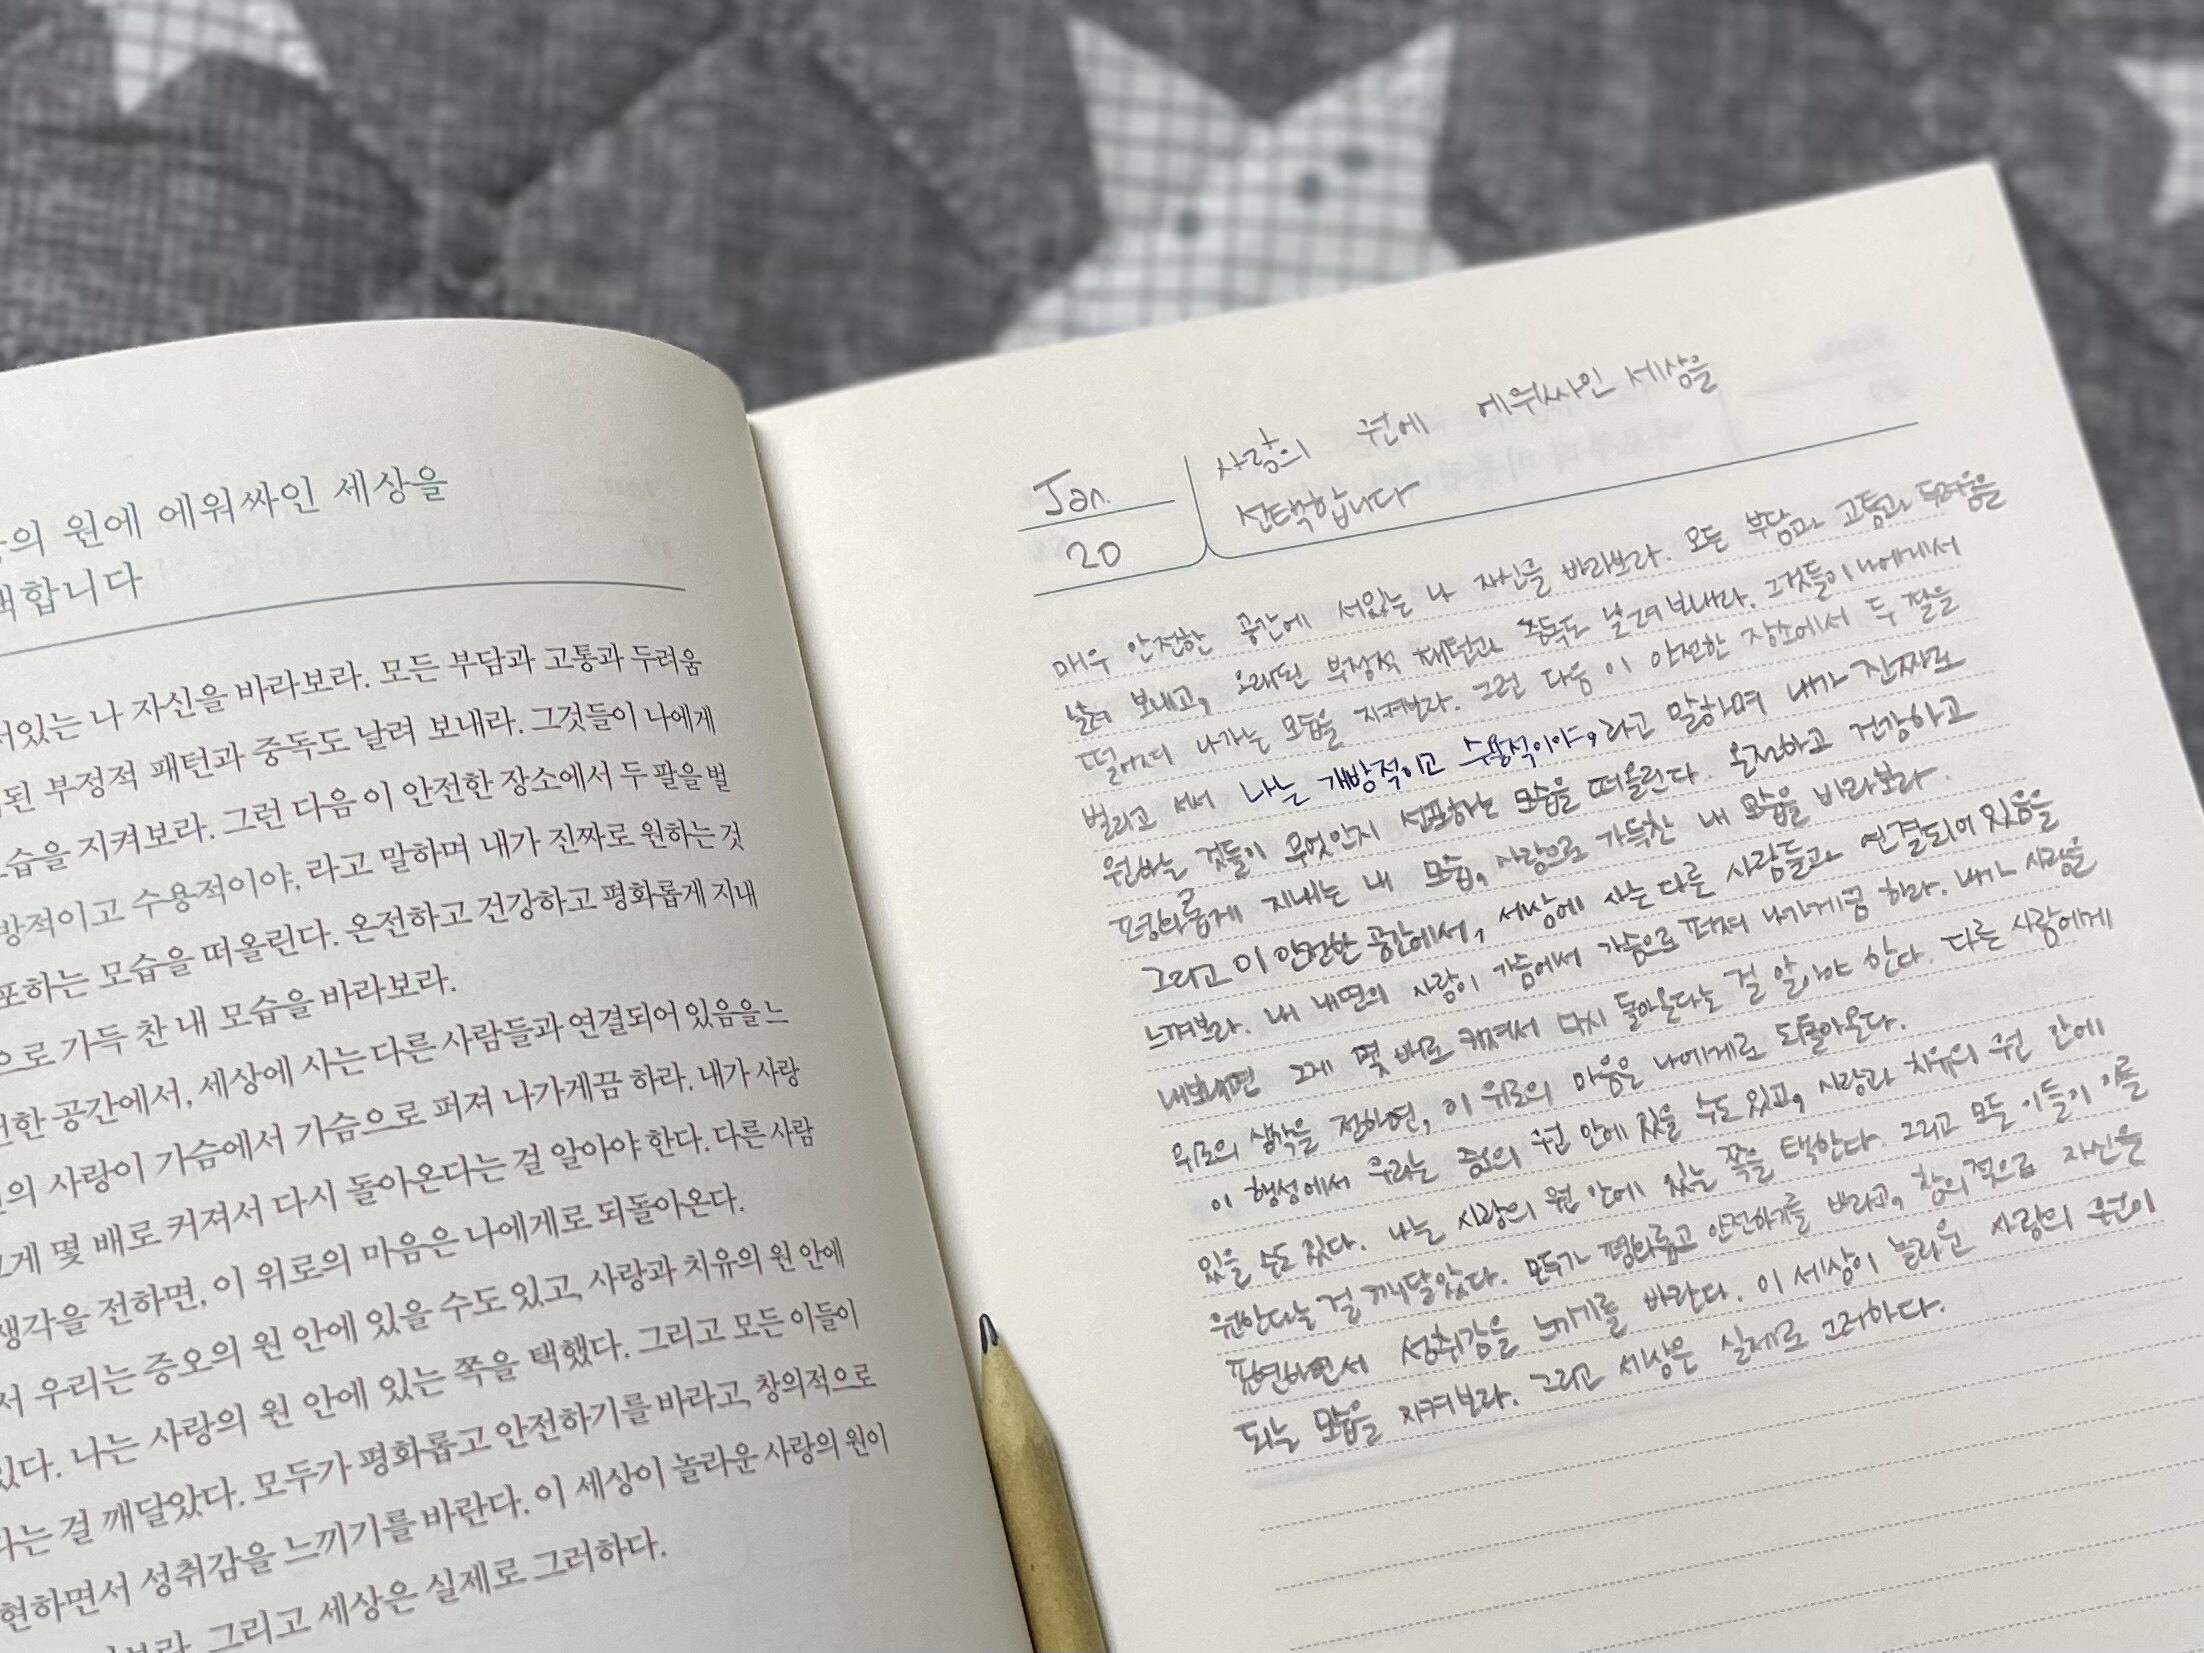 의 원에 에워싸인 세상을
택합니다
서있는 나 자신을 바라보라. 모든 부담과 고통과 두려움
된 부정적 패턴과 중독도 날려 보내라. 그것들이 나에게
모습을 지켜보라. 그런 다음 이 안전한 장소에서 두 팔을 벌
방적이고 수용적이야, 라고 말하며 내가 진짜로 원하는 것
포하는 모습을 떠올린다. 온전하고 건강하고 평화롭게 지내
으로 가득 찬 내 모습을 바라보라.
전한 공간에서, 세상에 사는 다른 사람들과 연결되어 있음을 느
의 사랑이 가슴에서 가슴으로 퍼져 나가게끔 하라. 내가 사랑
그게 몇 배로 커져서 다시 돌아온다는 걸 알아야 한다. 다른 사람
생각을 전하면, 이 위로의 마음은 나에게로 되돌아온다.
서 우리는 증오의 원 안에 있을 수도 있고, 사랑과 치유의 원 안에
있다. 나는 사랑의 원 안에 있는 쪽을 택했다. 그리고 모든 이들이
다는 걸 깨달았다. 모두가 평화롭고 안전하기를 바라고, 창의적으로
현하면서 성취감을 느끼기를 바란다. 이 세상이 놀라운 사랑의 원이
보라. 그리고 세상은 실제로 그러하다.
Jan.
20
사랑의 원에 에워싸인 세상을
선택합니다
매우 안전한 공간에 서있는 나 자신을 바라보라. 모든 부담과 고통과 두려움을
날려 보내고, 오래된 부정적 패턴과 중독도 날려 보내라. 그것들이 나에게서
떨어져 나가는 모습을 지켜보라. 그런 다음 이 안전한 장소에서 두 팔을
벌리고 서서 나는 개방적이고 수용적이야, 라고 말하며 내가 진짜로
원하는 것들이 무엇인지 선포하는 모습을 떠올린다. 온전하고 건강하고
평화롭게 지내는 내 모습, 사랑으로 가득찬 내 모습을 바라보라.
그리고 이 안전한 공간에서, 세상에 사는 다른 사람들과 연결되어 있음을
느껴보라. 내 내면의 사랑이 가슴에서 가슴으로 퍼져 나가게끔 하라. 내가 사랑을
내보내면 그게 몇 배로 커져서 다시 돌아온다는 걸 알아야 한다. 다른 사람에게
위로의 생각을 전하면, 이 위로의 마음은 나에게로 되돌아온다.
이 행성에서 우리는 증오의 원 안에 있을 수도 있고, 사랑과 치유의 원 안에
있을 수도 있다. 나는 사랑의 원 안에 있는 쪽을 택한다. 그리고 모든 이들이 이를
원한다는 걸 깨달았다. 모두가 평화롭고 안전하기를 바라고, 창의적으로 자신을
표현하면서 성취감을 느끼기를 바란다. 이 세상이 놀라운 사랑의 원이
되는 모습을 지켜보라. 그리고 세상은 실제로 그러하다.